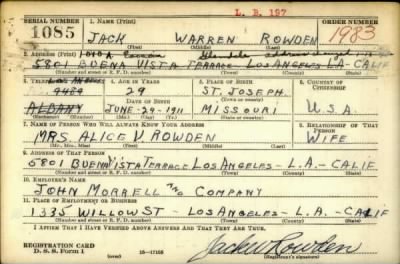 L. B. 197
SERIAL NUMBER 1. NAME (Print) ORDER NUMBER
1085 JACK WARREN ROWDEN 1983
(First) (Middle) (Last)
2. ADDRESS (Print)
5801 BUENA VISTA TERRACE - LOS ANGELES LA - CALIF
(Number and street or R. F. D. number) (Town) (County) (State)
3. TELEPHONE 4. AGE IN YEARS 5. PLACE OF BIRTH 6. COUNTRY OF CITIZENSHIP
29 ST. JOSEPH
ALBANY DATE OF BIRTH (Town or county)
JUNE - 29 - 1911 MISSOURI U.S.A.
(Exchange) (Number) (Mo.) (Day) (Yr.) (State or country)
7. NAME OF PERSON WHO WILL ALWAYS KNOW YOUR ADDRESS 8. RELATIONSHIP OF THAT PERSON
MRS. ALICE V. ROWDEN WIFE
(Mr., Mrs., Miss) (First) (Middle) (Last)
9. ADDRESS OF THAT PERSON
5801 BUENA VISTA TERRACE LOS ANGELES - L.A. - CALIF
(Number and street or R. F. D. number) (Town) (County) (State)
10. EMPLOYER'S NAME
JOHN MORRELL AND COMPANY
11. PLACE OF EMPLOYMENT OR BUSINESS
1335 WILLOW ST - LOS ANGELES - L.A. - CALIF
(Number and street or R. F. D. number) (Town) (County) (State)
I AFFIRM THAT I HAVE VERIFIED ABOVE ANSWERS AND THAT THEY ARE TRUE.
REGISTRATION CARD
D. S. S. Form 1 (over) 16-17105 Jack W Rowden
(Registrant's signature)